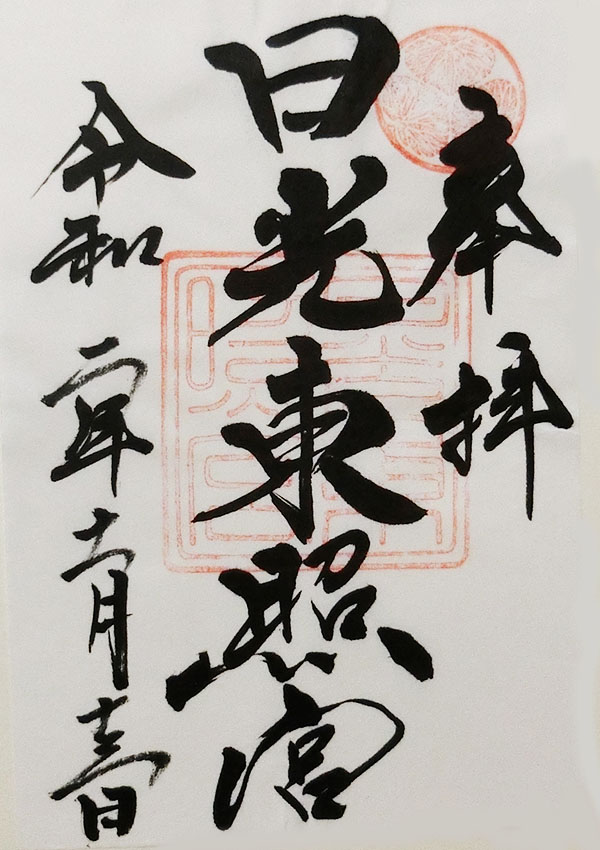 奉拝
日光東照宮
令和二年十一月